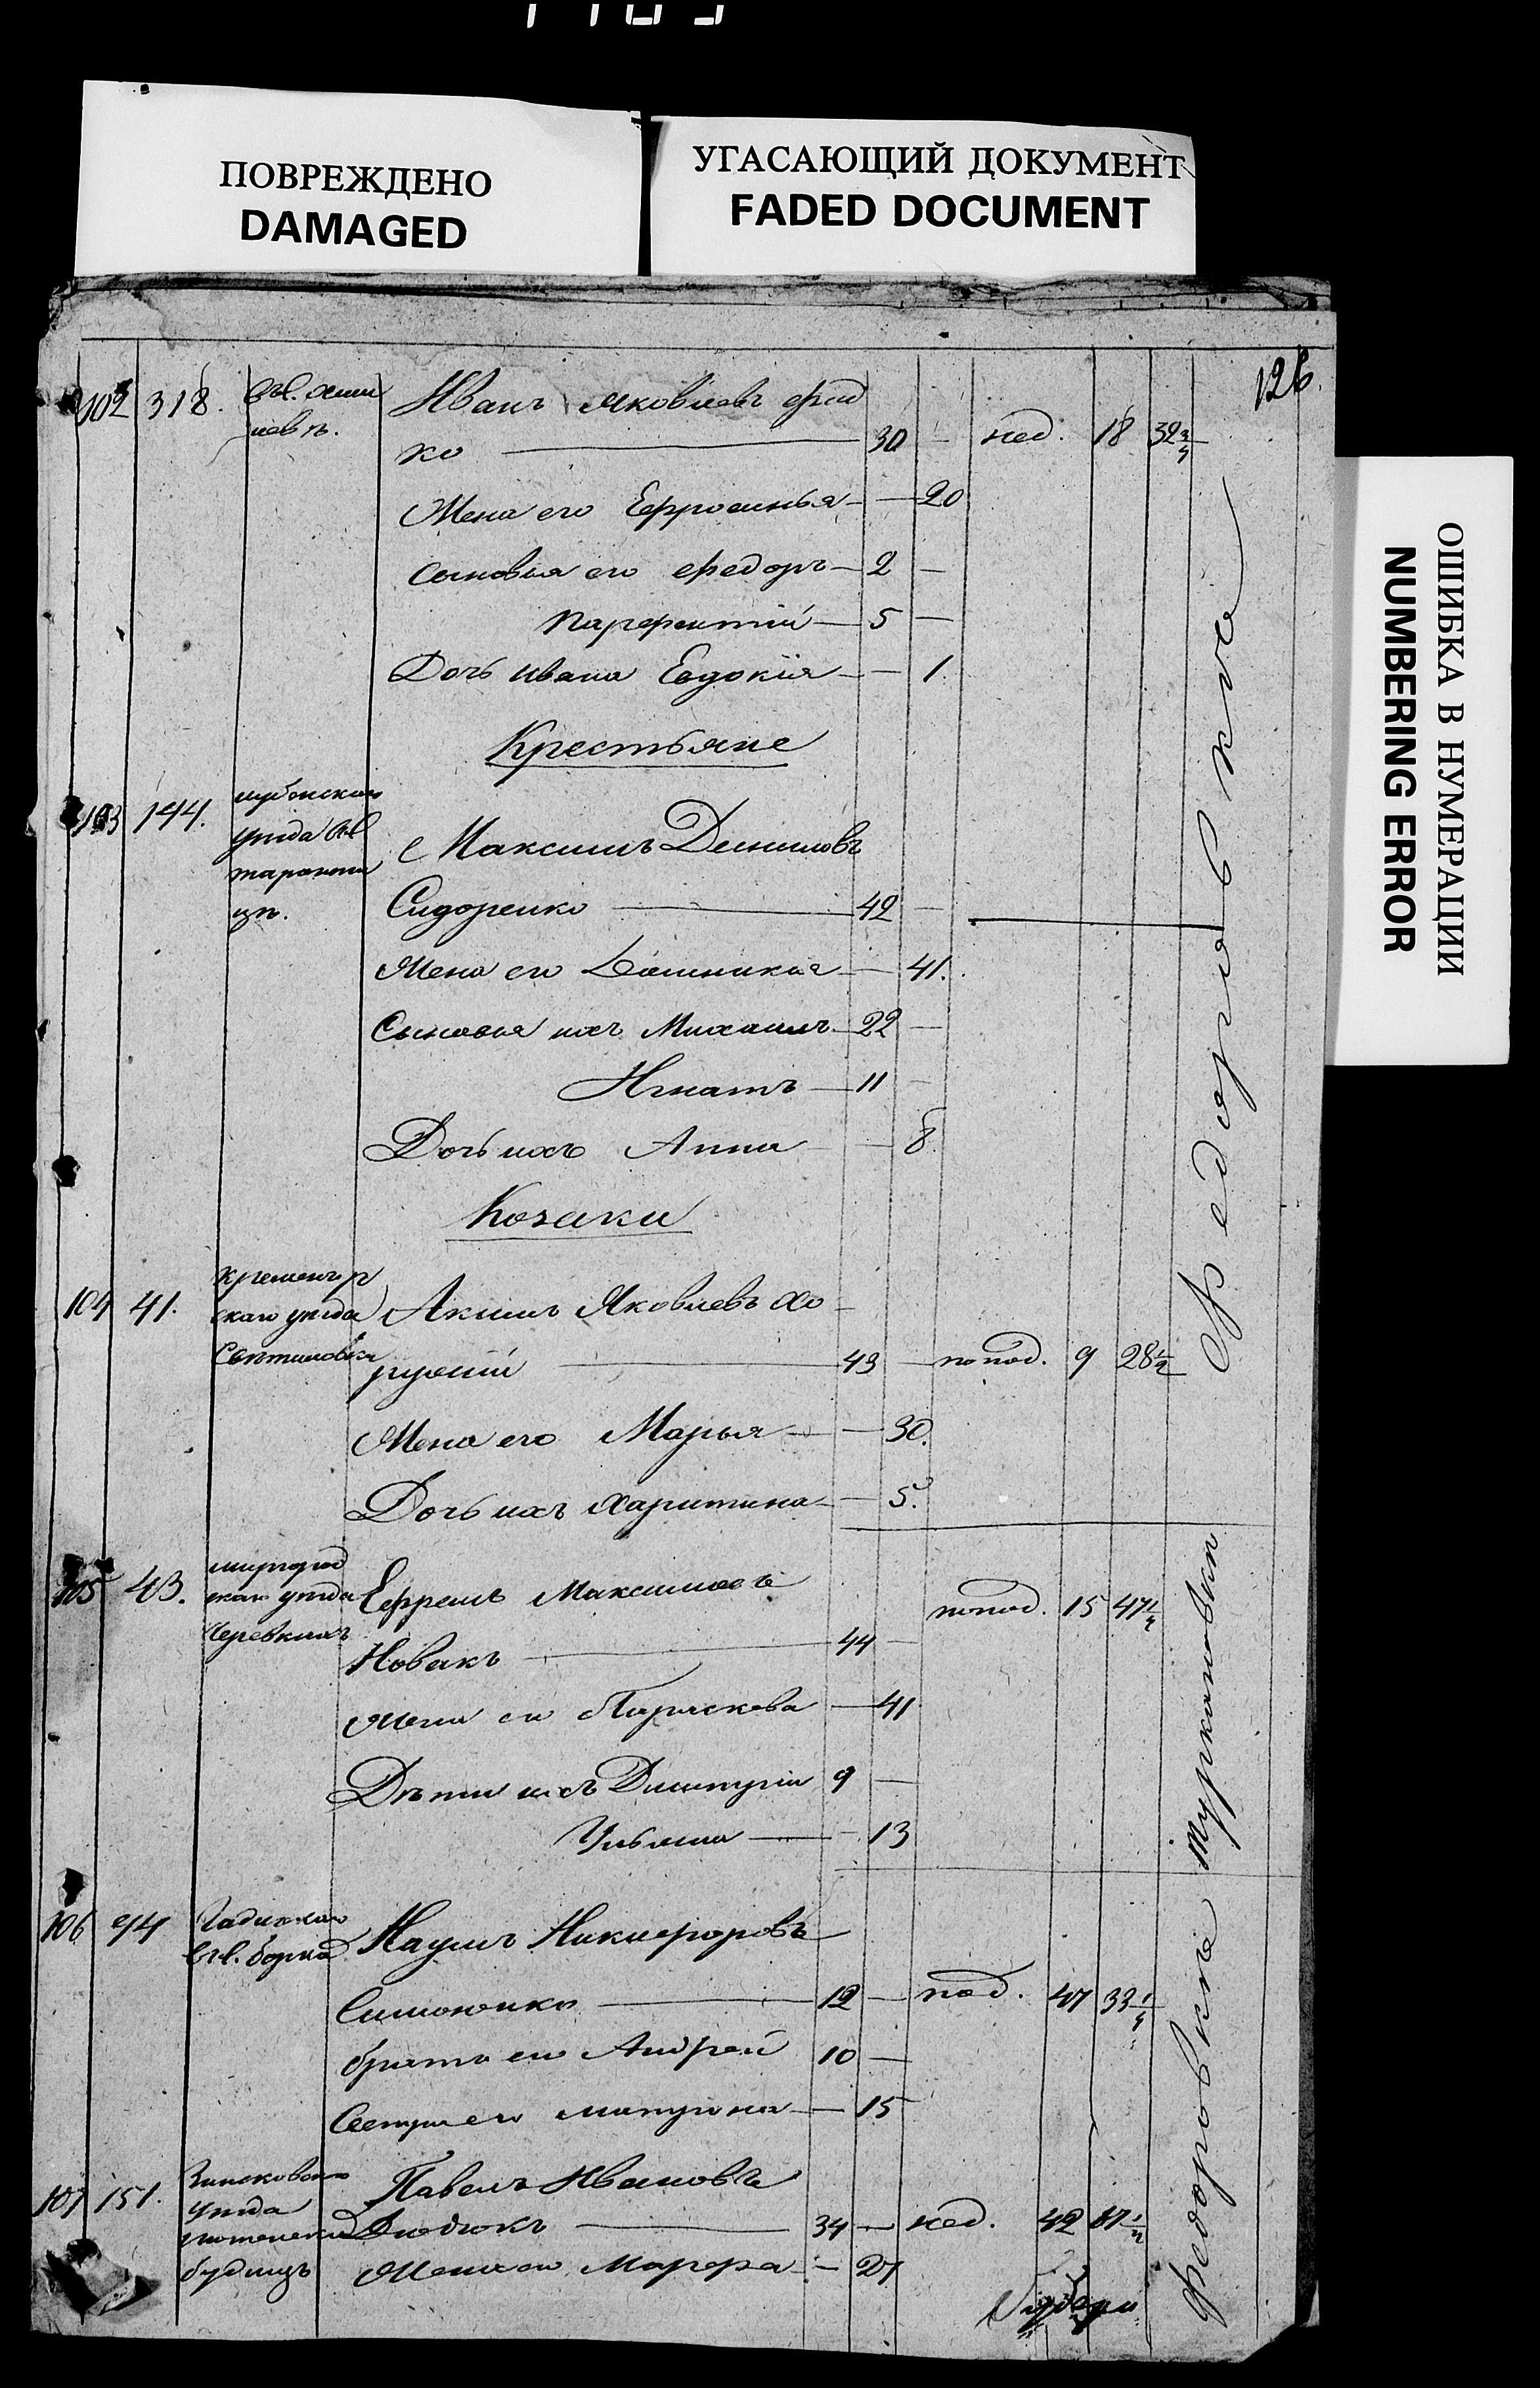 ПОВРЕЖДЕНО
DAMAGED
УГАСАЮЩИЙ ДОКУМЕНТ
FADED DOCUMENT
ОШИБКА В НУМЕРАЦИИ
NUMBERING ERROR
126.
102 318. Иванъ Яковлевъ
ко 30 — нед. 18 32¾
Жена его Ефросинья — 20
Сыновья его Федоръ 2 —
Парфентій 5 —
Дочь Ивана Евдокія — 1.
Крестьяне
103 144. уѣзда
Максимъ
Сидоренко 42 —
Жена его — 41.
Сыновья ихъ Михаилъ 22 —
Игнатъ 11 —
Дочь ихъ Анна — 8.
Козаки
104 41. Кременчуг
скаго уѣзда Акимъ Яковлевъ Хо
ружій 43 — попод. 9 28½
Жена его Марья — 30.
Дочь ихъ Харитина — 5.
105 43. миргород
скаго уѣзда Ефремъ Максимовъ попод. 15 47¼
Новакъ 44 —
Жена его Параскева — 41
Дѣти ихъ Димитрій 9 —
Ульяна — 13
106 94 Наумъ Никифоровъ
12 — под. 47 33¼
братъ его Андрей 10 —
Сестра его — 15
107 151. Зинковскаго
уѣзда Павелъ Ивановъ
будищъ 34 — нед. 42 87½
Жена его Марфа — 27
Федоровке
Федоровке